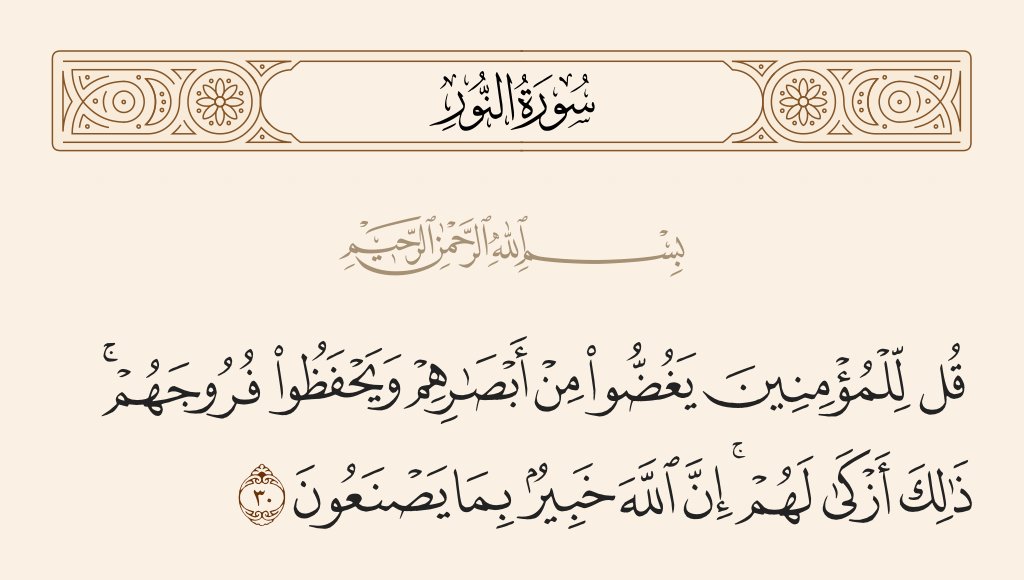 سُورَةُ النُّورِ
بِسْمِ ٱللَّهِ ٱلرَّحْمَٰنِ ٱلرَّحِيمِ
قُل لِّلْمُؤْمِنِينَ يَغُضُّوا۟ مِنْ أَبْصَٰرِهِمْ وَيَحْفَظُوا۟ فُرُوجَهُمْ ۚ
ذَٰلِكَ أَزْكَىٰ لَهُمْ ۚ إِنَّ ٱللَّهَ خَبِيرٌۢ بِمَا يَصْنَعُونَ ٣٠